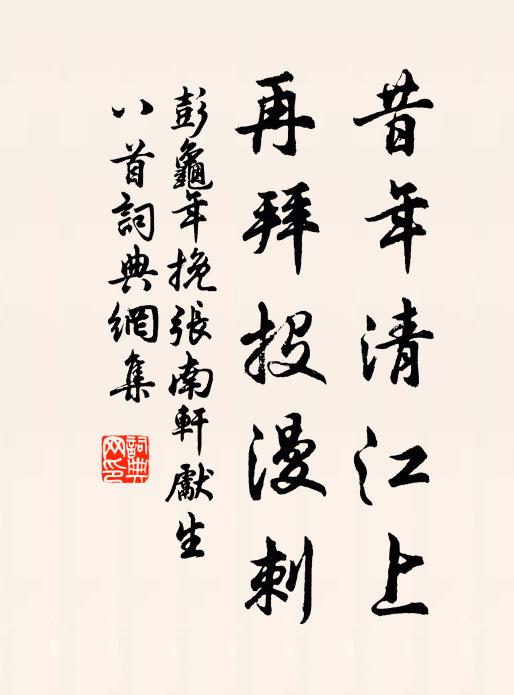 昔年清江上
再拜投漫刺
彭龜年挽張南軒獻生
八首詞典網集
詞典
网印